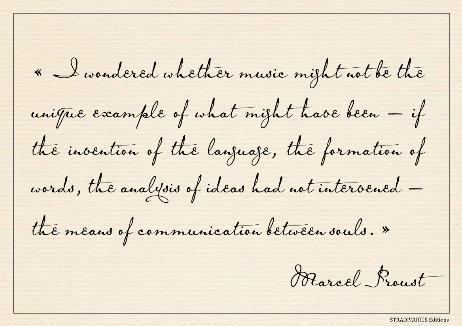 « I wondered whether music might not be the
unique example of what might have been – if
the invention of the language, the formation of
words, the analysis of ideas had not intervened –
the means of communication between souls. »
Marcel Proust
STRADIVARIUS Editions